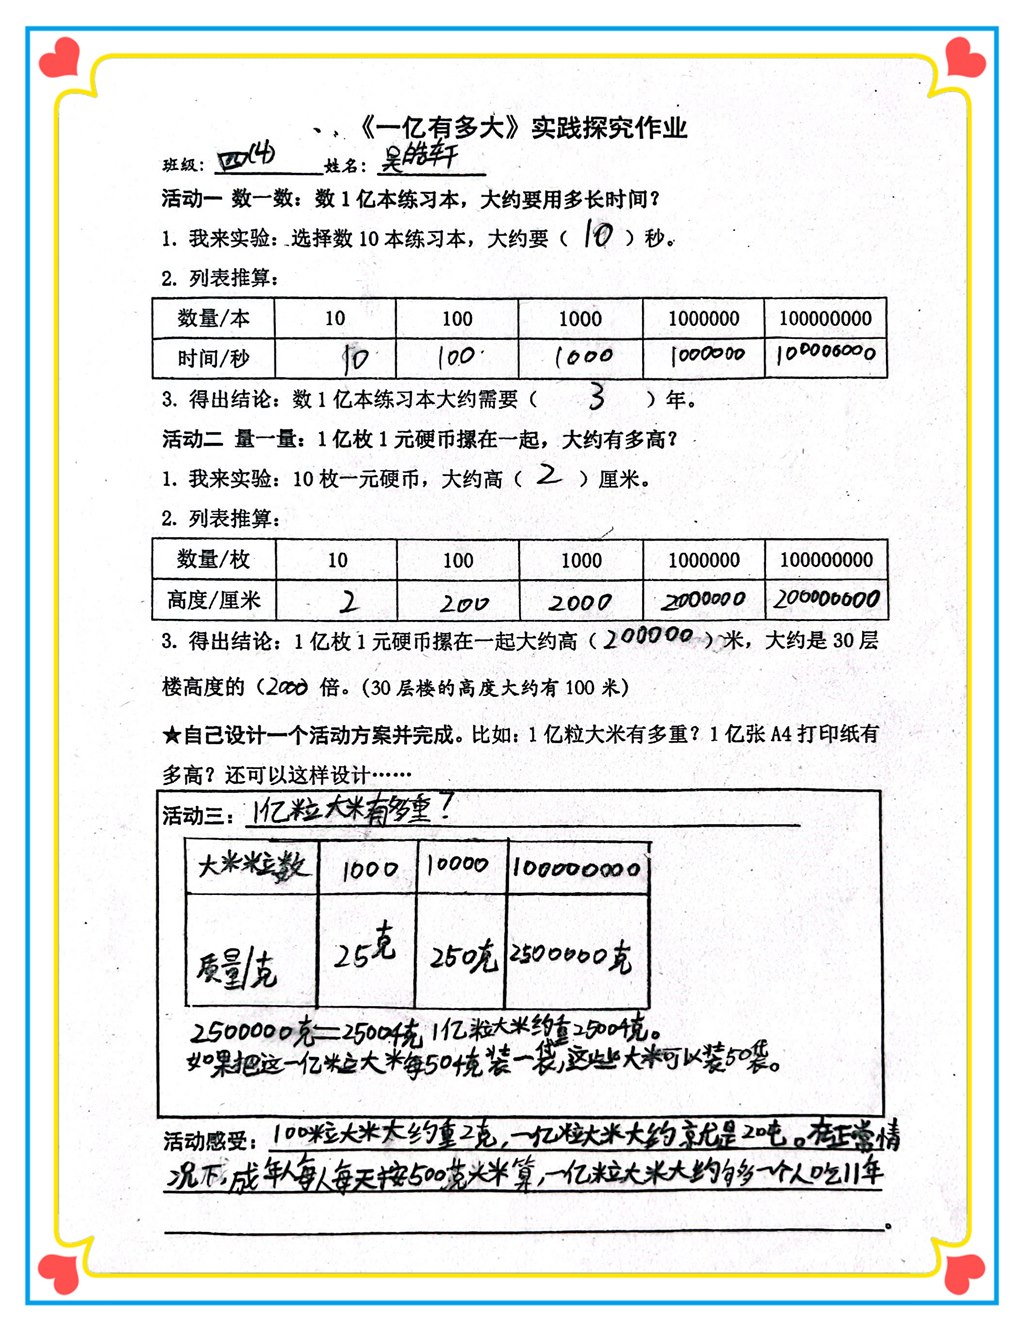 《一亿有多大》实践探究作业
班级：四(4) 姓名：吴皓轩
活动一 数一数：数1亿本练习本，大约要用多长时间？
1. 我来实验：选择数10本练习本，大约要（ 10 ）秒。
2. 列表推算：
数量/本 10 100 1000 1000000 100000000
时间/秒 10 100 1000 1000000 100000000
3. 得出结论：数1亿本练习本大约需要（ 3 ）年。
活动二 量一量：1亿枚1元硬币摞在一起，大约有多高？
1. 我来实验：10枚一元硬币，大约高（ 2 ）厘米。
2. 列表推算：
数量/枚 10 100 1000 1000000 100000000
高度/厘米 2 200 2000 2000000 200000000
3. 得出结论：1亿枚1元硬币摞在一起大约高（200000）米，大约是30层
楼高度的（2000 倍。(30层楼的高度大约有100米)
★自己设计一个活动方案并完成。比如：1亿粒大米有多重？1亿张A4打印纸有
多高？还可以这样设计……
活动三：1亿粒大米有多重？
大米粒数 1000 10000 100000000
质量/克 25克 250克 2500000克
2500000克=2500千克 1亿粒大米约重2500千克。
如果把这一亿粒大米每50千克装一袋，这些大米可以装50袋。
活动感受：100粒大米大约重2克，一亿粒大米大约就是20吨。在正常情
况下，成年人每人每天按500克大米算，一亿粒大米大约够一个人吃11年
。